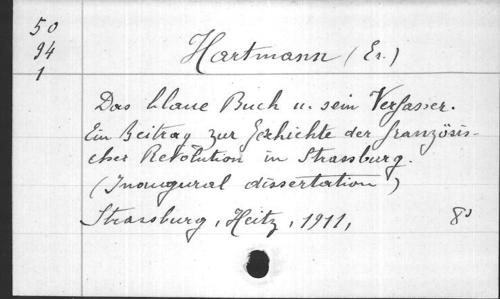 50
94
1
Hartmann (Er.)
Das blaue Buch u. sein Verfasser.
Ein Beitrag zur Geschichte der französis-
chen Revolution in Strassburg.
(Inaugural dissertation)
Strassburg, Heitz, 1911, 8°